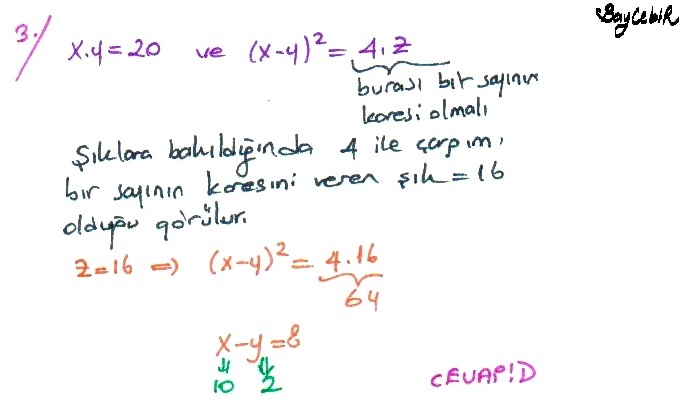 BayCebiR
3. x.y=20 ve (x-y)²= 4.z
burası bir sayının
karesi olmalı
Şıklara bakıldığında 4 ile çarpım,
bir sayının karesini veren şık = 16
olduğu görülür.
z=16 ⇒ (x-y)² = 4.16
64
x-y=8
⇓ ⇓
10 2
CEVAP!D